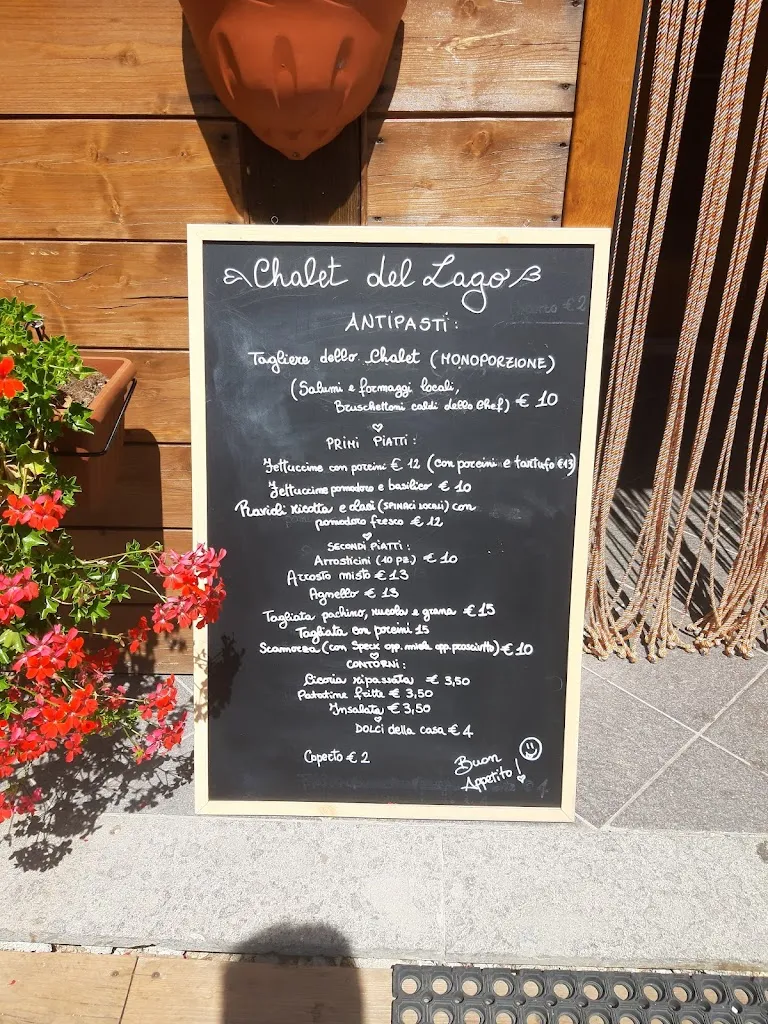 Chalet del Lago
ANTIPASTI:
Tagliere dello Chalet (MONOPORZIONE)
(Salumi e formaggi locali,
Bruschettoni caldi dello Chef) € 10
PRIMI PIATTI:
Fettuccine con porcini € 12 (con porcini e tartufo €13)
Fettuccine pomodoro e basilico € 10
Ravioli ricotta e olasi (SPINACI LOCALI) con
pomodoro fresco € 12
SECONDI PIATTI:
Arrosticini (10 PZ.) € 10
Arrosto misto € 13
Agnello € 13
Tagliata pachino, rucola e grana € 15
Tagliata con porcini 15
Scamorza (con Speck opp. miele opp. prosciutto) € 10
CONTORNI:
Cicoria ripassata € 3,50
Patatine fritte € 3,50
Insalata € 3,50
DOLCI della casa € 4
Coperto € 2
Buon
Appetito!